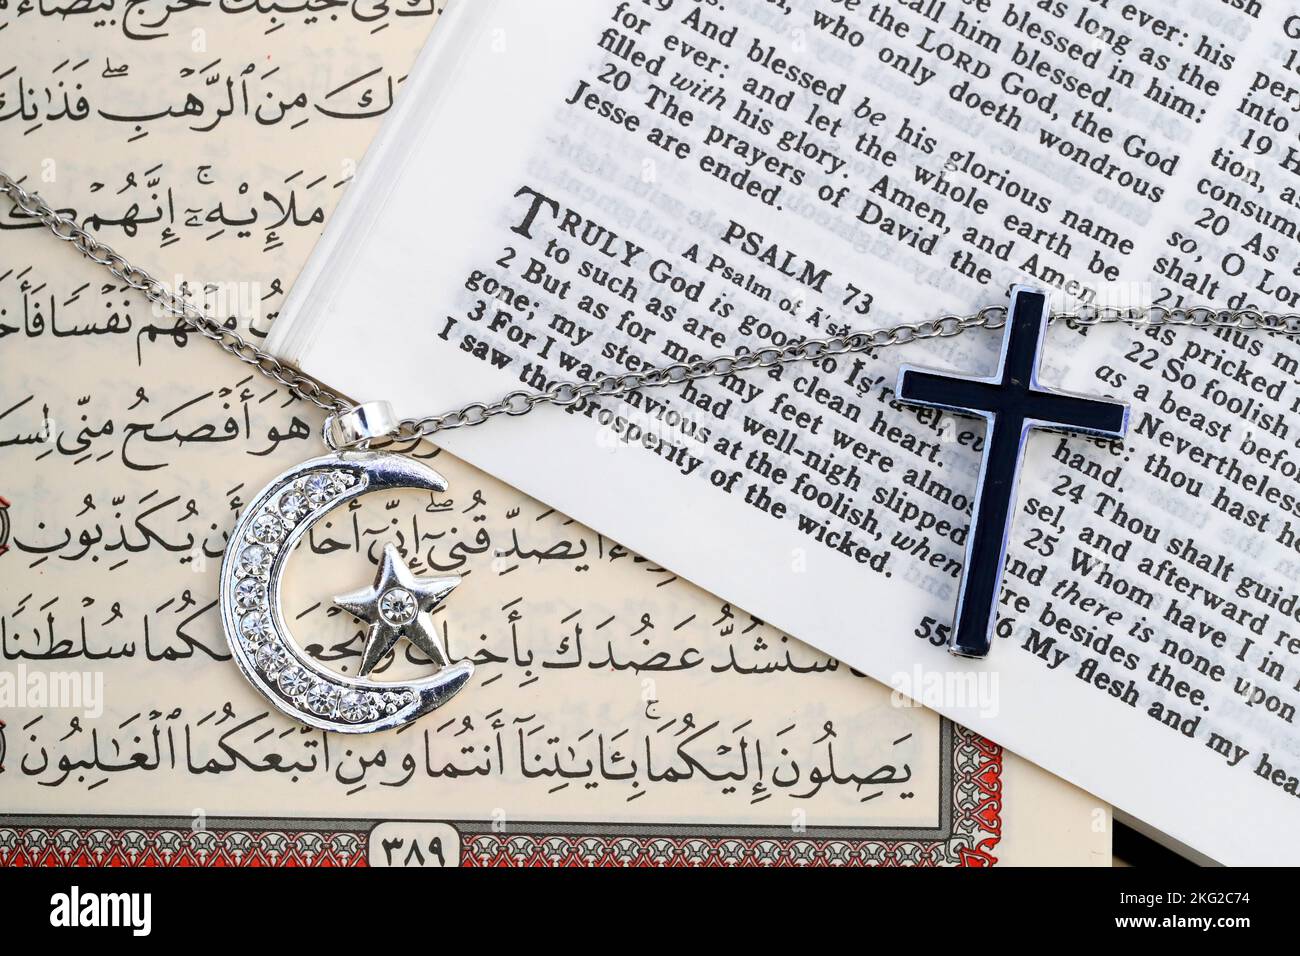 مِنَ ٱلرَّهْبِ ۖ فَذَٰنِكَ
وَمَلَإِي۟هِۦٓ ۚ إِنَّهُمْ
مِنْهُمْ نَفْسًا فَأَخَ
هُوَ أَفْصَحُ مِنِّي لِسَ
يُصَدِّقُنِىٓ ۖ إِنِّىٓ أَخَا أَن يُكَذِّبُونِ
سَنَشُدُّ عَضُدَكَ بِأَخِيكَ وَنَجْعَلُ لَكُمَا سُلْطَٰنًا
يَصِلُونَ إِلَيْكُمَا ۚ بِـَٔايَٰتِنَآ أَنتُمَا وَمَنِ ٱتَّبَعَكُمَا ٱلْغَٰلِبُونَ
٣٨٩
be the LORD God, the God
who only doeth wondrous
19 And blessed be his glorious name
for ever: and let the whole earth be
filled with his glory. Amen, and Amen.
20 The prayers of David the
Jesse are ended.
PSALM 73
A Psalm of Ā'săph.
TRULY God is good to Ĭş'
to such as are a clean heart.
2 But as for me, my feet were almost
gone; my steps had well-nigh slipped.
3 For I was envious at the foolish, when
I saw the prosperity of the wicked.
55
ever: his
as long as the
blessed in him:
call him blessed.
21 Thus m
as pricked
22 So foolish
as a beast before
Nevertheless
thee: thou hast h
hand.
24 Thou shalt guide
sel, and afterward re
25 Whom have I in
and there is none upon
re besides thee.
26 My flesh and my hea
into
19 E
tion, as
consume
20 As a
so, O Lor
shalt de
alamy
Image ID: 2KG2C74
www.alamy.com